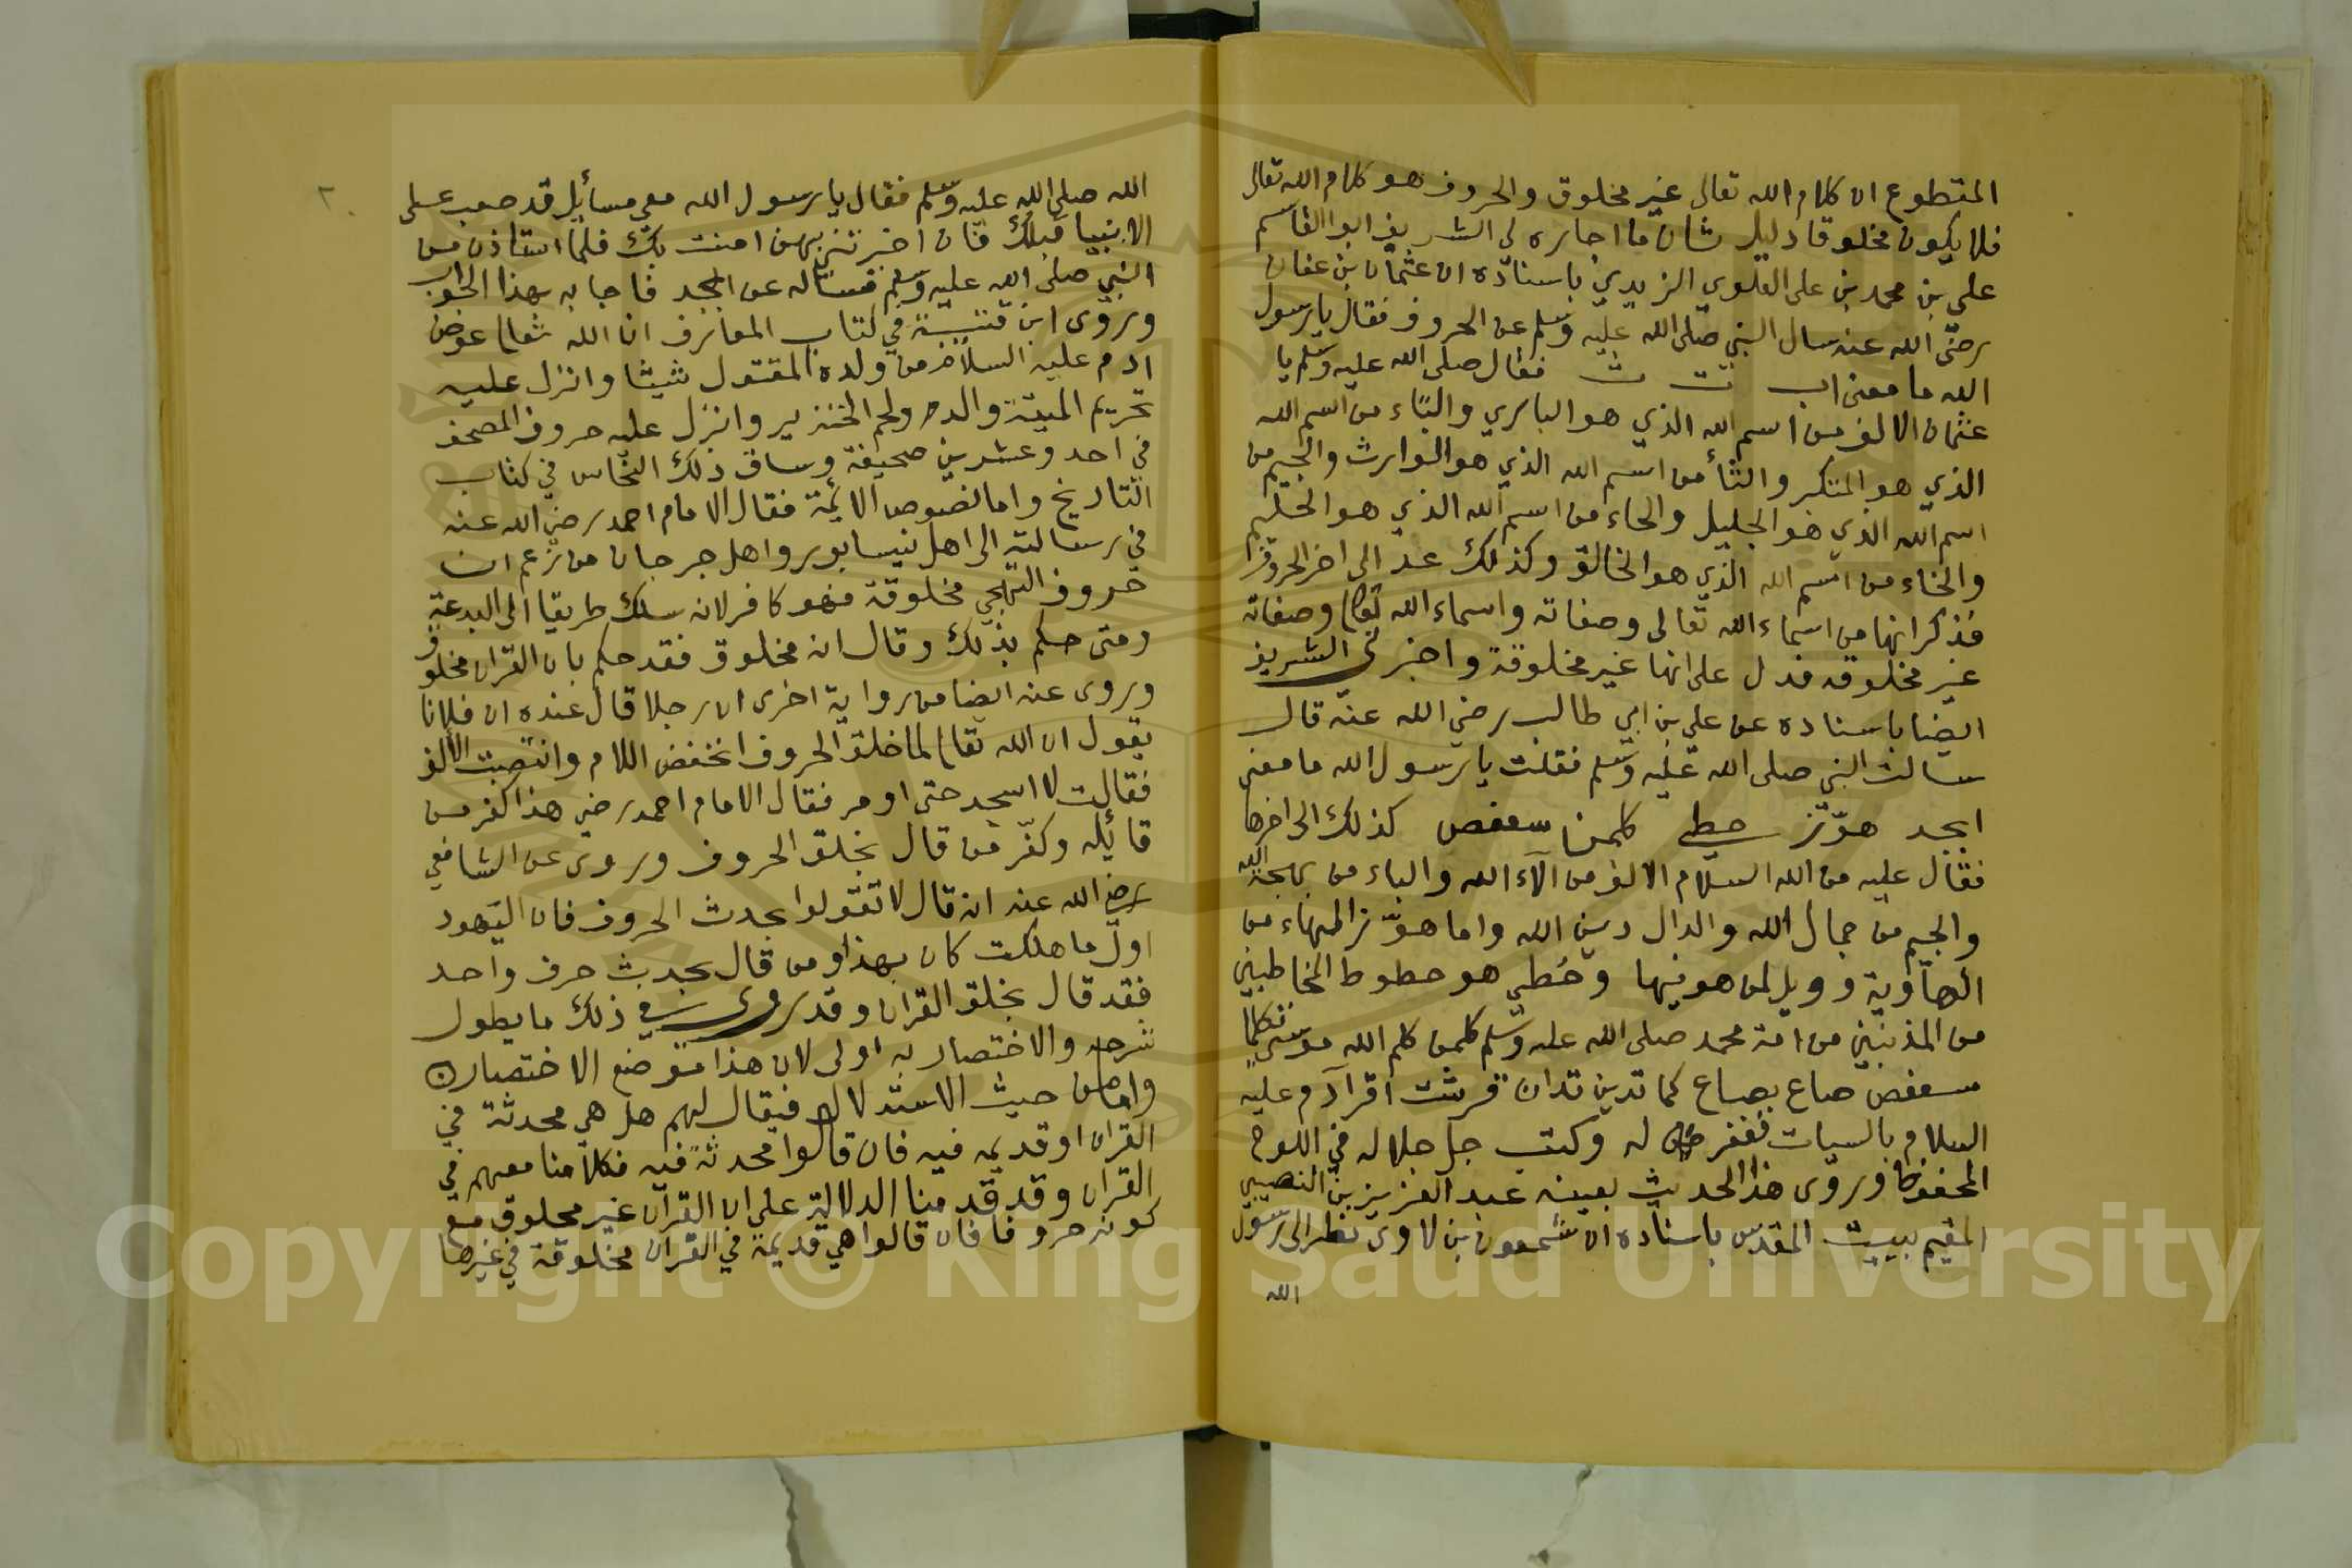 المقطوع ان كلام الله تعالى غير مخلوق والحروف هو كلام الله تعالى
فلا يكون مخلوقا دليل ثان ما اجازه لي الشريف ابو القاسم
علي بن محمد بن علي العلوي الزيدي باسناده ان عثمان بن عفان
رضى الله عنه سال النبي صلى الله عليه وسلم عن الحروف فقال يا رسول
الله ما معنى اب ت ث فقال صلى الله عليه وسلم يا
عثمان الالف من اسم الله الذي هو الباري والتاء من اسم الله
الذي هو المتكبر والثاء من اسم الله الذي هو الوارث والجيم من
اسم الله الذي هو الجليل والحاء من اسم الله الذي هو الحليم
والخاء من اسم الله الذي هو الخالق وكذلك عد الى اخر الحروف
فذكر انها من اسماء الله تعالى وصفاته واسماء الله تعالى وصفاته
غير مخلوقه فدل على انها غير مخلوقة واخبرني الشريف
ايضا باسناده عن علي بن ابي طالب رضي الله عنه قال
سالت النبي صلى الله عليه وسلم فقلت يا رسول الله ما معنى
ابجد هوّز حطي كلمن سعفص كذلك الى اخرها
فقال عليه من الله السلام الالف من آلاء الله والباء من بهجة الله
والجيم من جمال الله والدال دين الله واما هوّز الهاء من
الهاوية وويل لمن هو فيها وحُطي هو حطوط الخاطيين
من المذنبين من امة محمد صلى الله عليه وسلم كلمن كلم الله موسى تكليما
سعفص صاع بصاع كما تدين تدان قرشت اقرا آدم عليه
السلام بالسيات فغفر له وكتب جل جلاله في اللوح
المحفوظ وروى هذا الحديث بعينه عبد العزيز بن النصيبي
المقيم ببيت المقدس باسناده ان شمعون بن لاوى نظر الى رسول
الله
٢٠
الله صلى الله عليه وسلم فقال يا رسول الله معي مسائيل قد صعب على
الانبيا قبلك فان اخبرتني بهن امنت بك فلما استاذن من
النبي صلى الله عليه وسلم فساله عن ابجد فاجابه بهذا الجواب
وروى ابن قتيبة في كتاب المعارف ان الله تعالى عوض
ادم عليه السلام من ولده المقتول شيثا وانزل عليه
تحريم الميتة والدم ولحم الخنزير وانزل عليه حروف المصحف
في احد وعشرين صحيفة وساق ذلك النحاس في كتاب
التاريخ واما نصوص الائمة فقال الامام احمد رضي الله عنه
في رسالته الى اهل نيسابور واهل جرجان من زعم ان
حروف التهجي مخلوقة فهو كافر لانه سلك طريقا الى البدعة
ومتى حكم بذلك وقال انه مخلوق فقد حكم بان القران مخلوق
وروى عنه ايضا من رواية اخرى ان رجلا قال عنده ان فلانا
يقول ان الله تعالى لما خلق الحروف انخفض اللام وانتصبت الالف
فقالت لا اسجد حتى اومر فقال الامام احمد رضي هذا كفر من
قائله وكفّر من قال بخلق الحروف وروى عن الشافعي
رضي الله عنه انه قال لا تقولوا بحدث الحروف فان اليهود
اول ما هلكت كان بهذا ومن قال بحدث حرف واحد
فقد قال بخلق القران وقد روى في ذلك ما يطول
شرحه والاختصار به اولى لان هذا موضع الاختصار
واما من حيث الاستدلال فيقال لهم هل هي محدثة في
القران او قديمه فيه فان قالوا محدثة فيه فكلامنا معهم في
القران وقد قدمنا الدلالة على ان القرآن غير مخلوق مع
كونه حروفا فان قالوا هي قديمة في القران مخلوقة في غيرها
Copyright © King Saud University